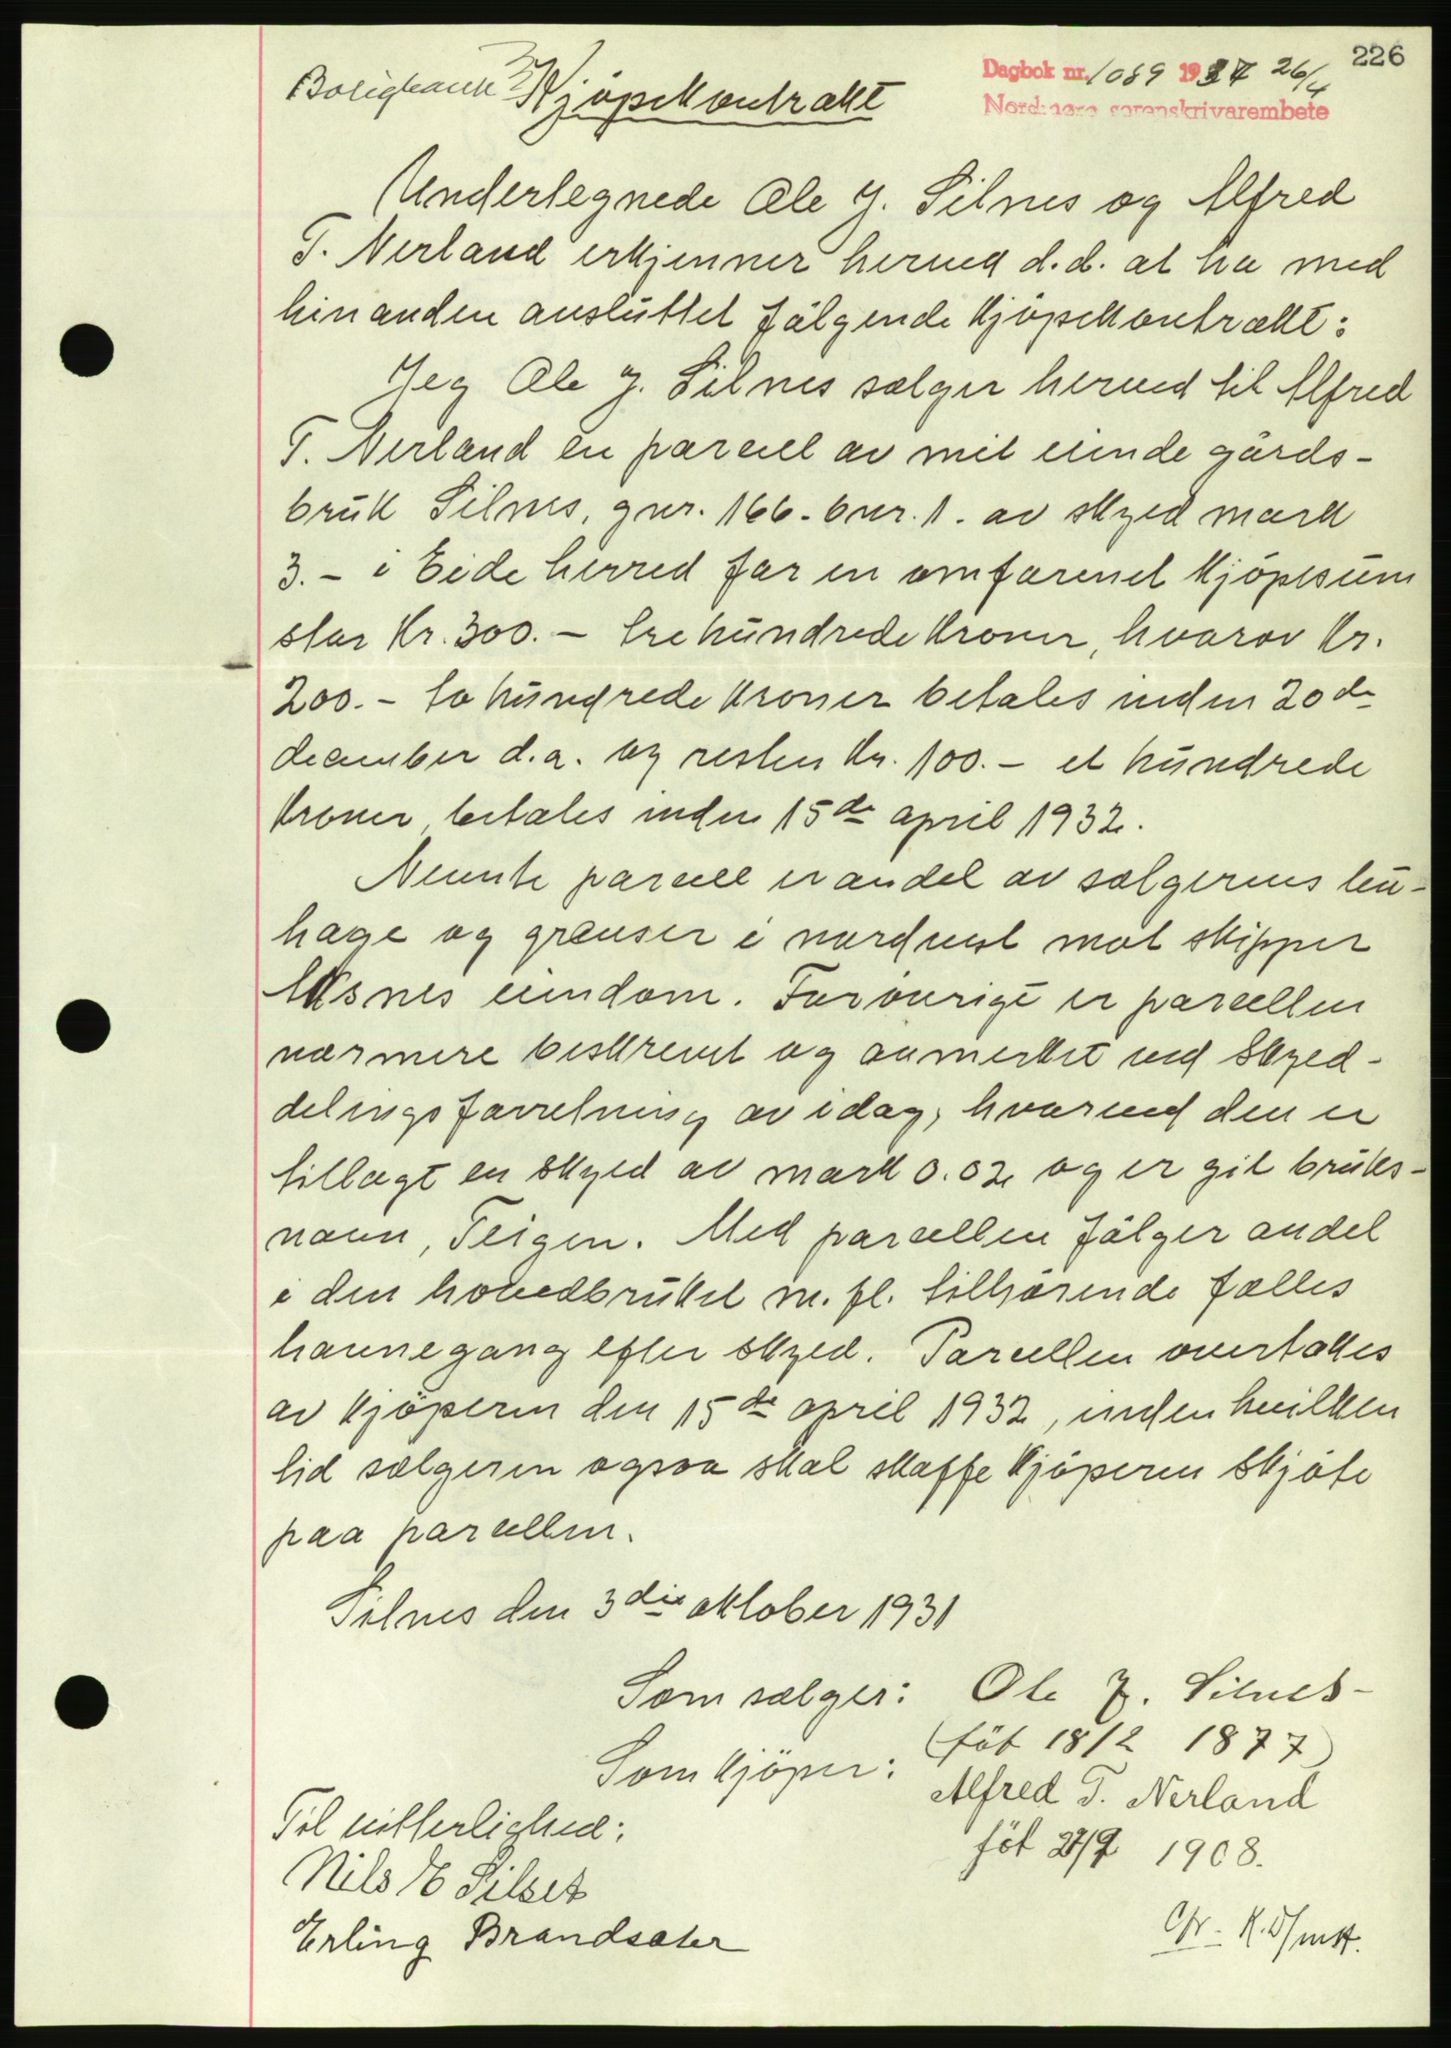 226
Dagbok nr. 1089 1937 26/4
Nordmøre sorenskrivarembete
Boligbank
Kjöpekontrakt
Undertegnede Ole J. Silnes og Alfred
T. Nerland erkjenner herved d.d. at ha med
hinanden avsluttet følgende kjöpekontrakt:
Jeg Ole J. Silnes sælger herved til Alfred
T. Nerland en parcell av mit eiende gårds-
bruk Silnes, gnr. 166. bnr. 1. av skyld mark
3.- i Eide herred for en omforenet kjöpesum
stor kr. 300.- tre hundrede kroner, hvorav kr.
200.- to hundrede kroner betales inden 20de
december d.a. og resten kr. 100.- et hundrede
kroner, betales inden 15de april 1932.
Nevnte parcell er andel av sælgerens leu-
hage og grænser i nordvest mot skipper
Aksnes eiendom. Forøvrigt er parcellen
nærmere beskrevet og avmerket ved skyld-
delingsforretning av idag, hvorved den er
tillagt en skyld av mark 0.02 og er git bruks-
navn, Teigen. Med parcellen følger andel
i den hovedbruket m. fl. tilhørende fælles
havnegang efter skyld. Parcellen overtakes
av kjöperen den 15de april 1932, inden hvilken
tid sælgeren ogsaa skal skaffe kjöperen skjöte
paa parcellen.
Silnes den 3die oktober 1931
Som sælger: Ole J. Silnes-
(föt 18/2 1877)
Som kjöper: Alfred T. Nerland
föt 27/9 1908.
Til vitterlighed:
Nils E Silset
Erling Brandsæter